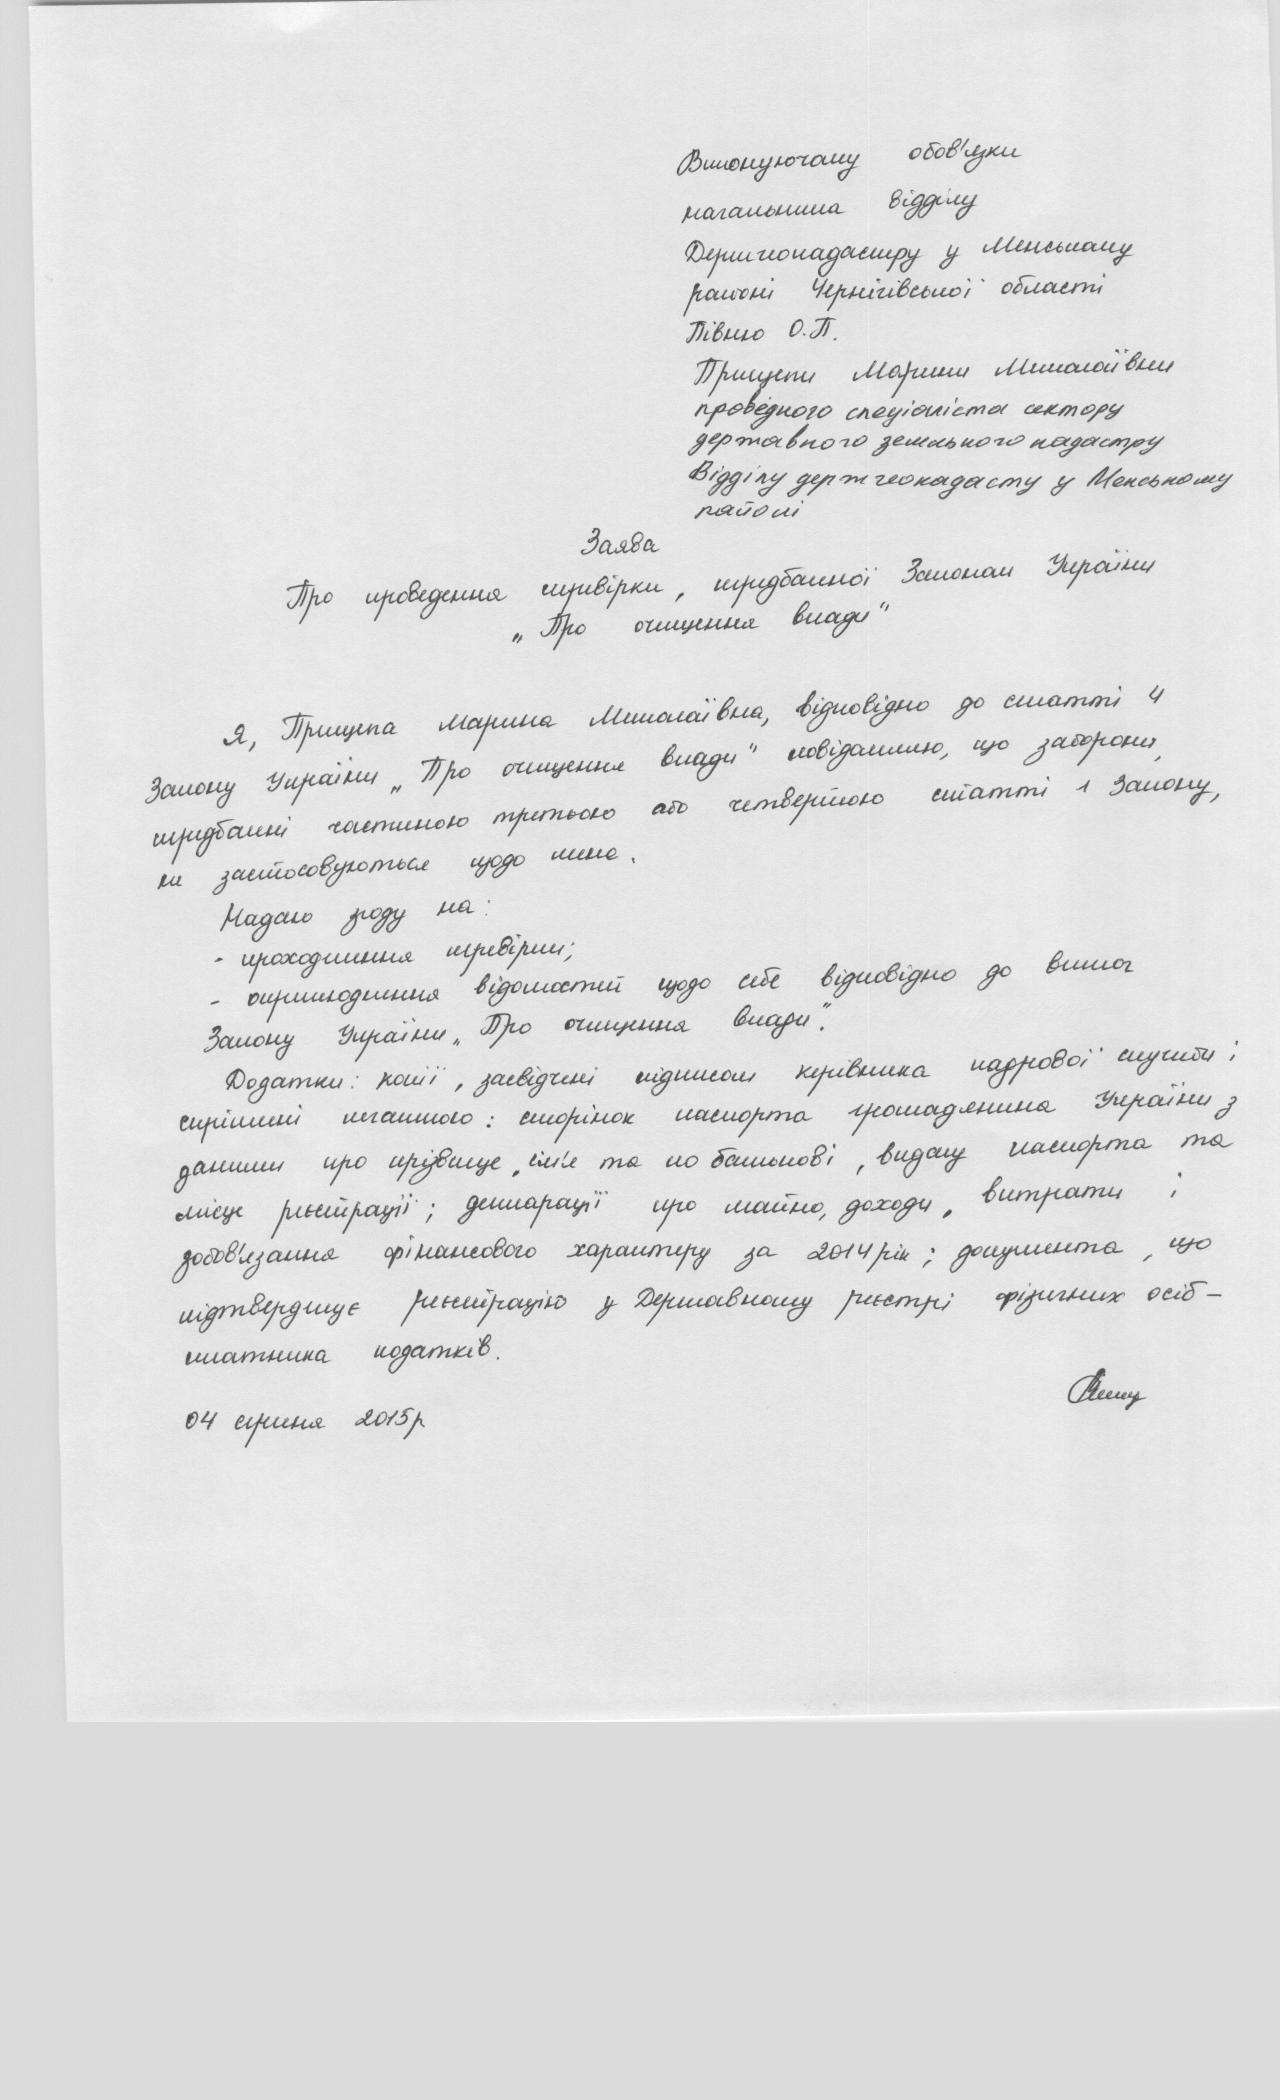 Виконуючому обов'язки
начальника відділу
Держгеокадастру у Менському
районі Чернігівської області
Півню О.П.
Прищепи Марини Миколаївни
провідного спеціаліста сектору
державного земельного кадастру
Відділу держгеокадасту у Менському
районі
Заява
Про проведення перевірки, передбаченої Законом України
„Про очищення влади"
Я, Прищепа Марина Миколаївна, відповідно до статті 4
Закону України „Про очищення влади" повідомляю, що заборони,
передбачені частиною третьою або четвертою статті 1 Закону,
не застосовуються щодо мене.
Надаю згоду на:
- проходження перевірки;
- оприлюднення відомостей щодо себе відповідно до вимог
Закону України „Про очищення влади".
Додатки: копії, засвідчені підписом керівника кадрової служби і
скріплені печаткою: сторінок паспорта громадянина України з
даними про прізвище, ім'я та по батькові, видачу паспорта та
місце реєстрації; декларації про майно, доходи, витрати і
зобов'язання фінансового характеру за 2014 рік; документа, що
підтверджує реєстрацію у Державному реєстрі фізичних осіб –
платника податків.
04 серпня 2015р